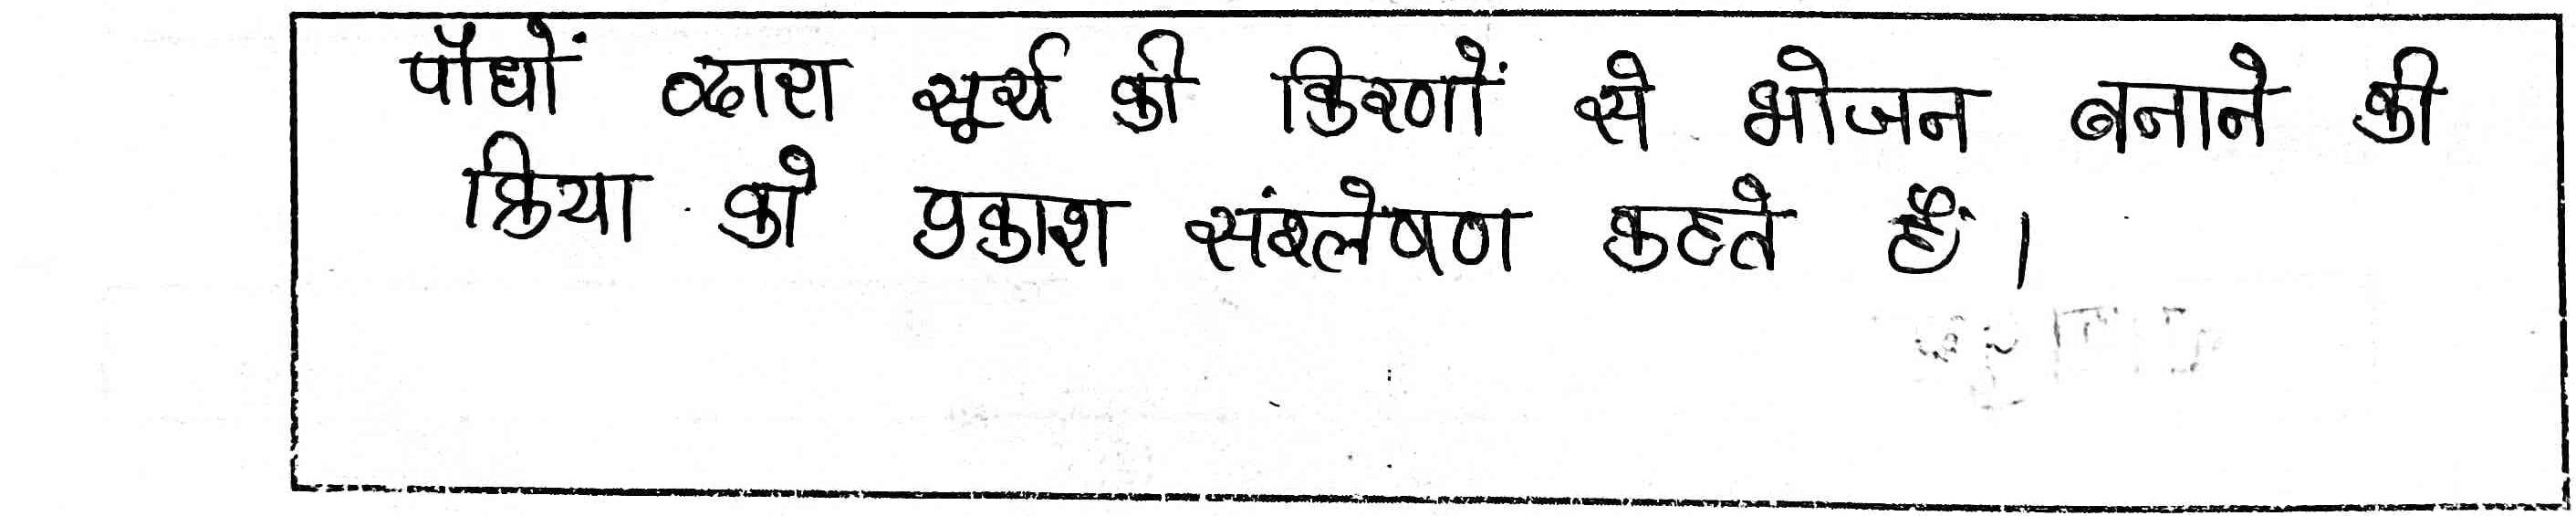 पौधों द्वारा सूर्य की किरणों से भोजन बनाने की
क्रिया को प्रकाश संश्लेषण कहते हैं।